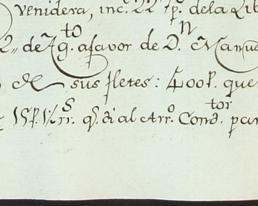 Venidera, inc. 22 ps. de la Lib
2,, de Agto. afavor de Dn. Manue
de sus fletes: 400ps. que
15ps. ½rrs. q. di al Arro. Condtor. par